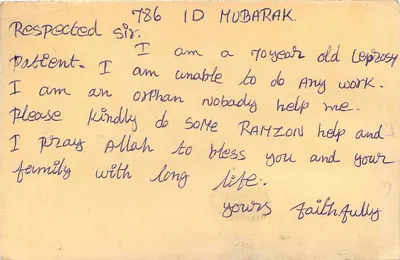 786 ID MUBARAK
Respected Sir.
I am a 70year old leprosy
Patient. I am unable to do any work.
I am an orphan nobody help me.
Please kindly do some RAMZON help and
I pray Allah to bless you and your
family with long life.
yours faithfully